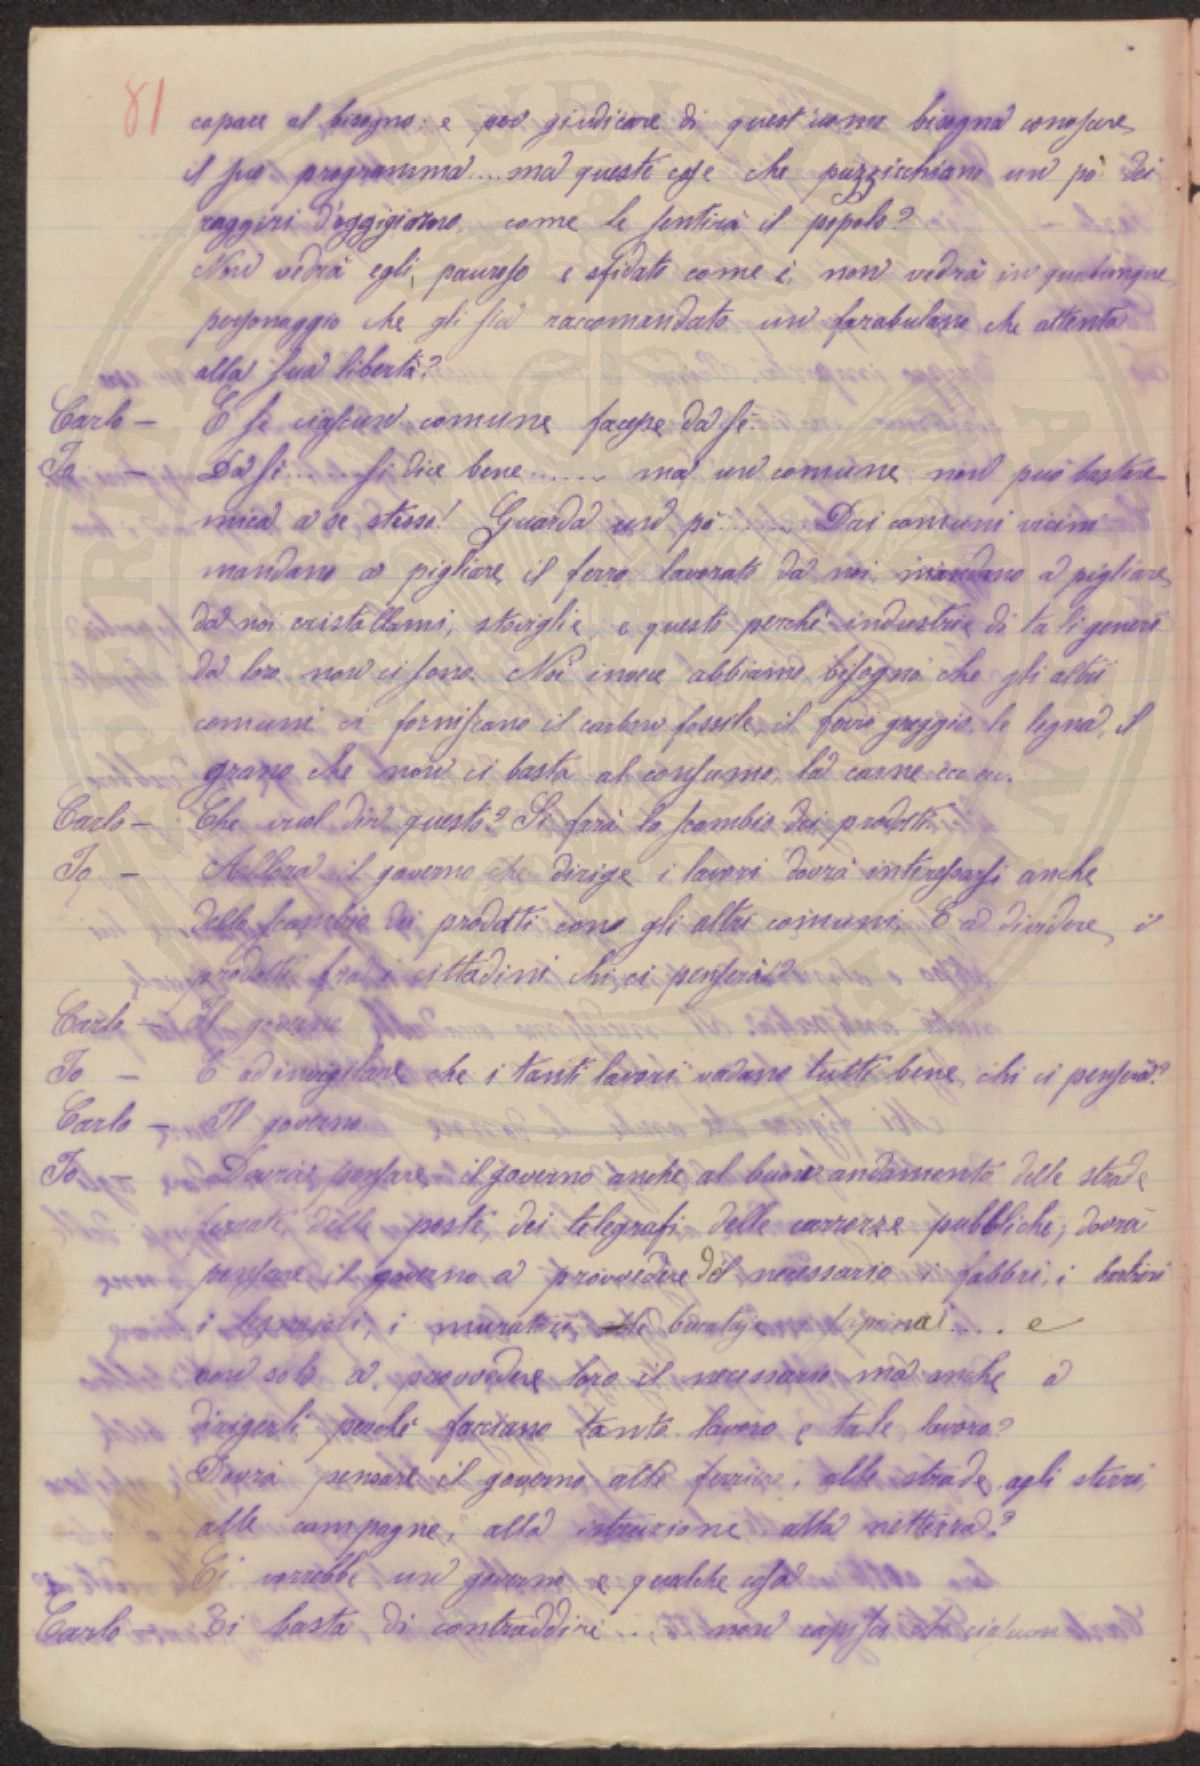 81
capace al bisogno; e per giudicare di quest'uomo bisogna conoscere
il suo programma.... ma queste cose che puzzischiano un pò dei
raggiri d'oggigiorno, come le sentirà il popolo?
Non vedrà egli, pauroso e sfidato come è, non vedrà in qualunque
personaggio che gli sia raccomandato un farabulano che attenta
alla sua libertà?
Carlo — E se ciascun comune facesse da sè.
Io — Da sè...... si dice bene....... ma un comune non può bastare
mica a se stesso! Guarda un pò....... Dai comuni vicini
mandano a pigliare il ferro lavorato da noi, mandano a pigliare
da noi cristallami, stoviglie, e questo perchè industrie di tali generi
da loro non ci sono. Noi invece abbiamo bisogno che gli altri
comuni ci forniscano il carbon fossile, il ferro greggio, le legna, il
grano che non ci basta al consumo, la carne ecc ecc.
Carlo — Che vuol dir questo? Si farà lo scambio dei prodotti.
Io — Allora il governo che dirige i lavori dovrà interessarsi anche
dello scambio dei prodotti cono gli altri comuni. E a dividere i
prodotti fra i cittadini chi ci penserà?
Carlo — Il governo
Io — E ad invigilare che i tanti lavori vadano tutti bene, chi ci penserà?
Carlo — Il governo
Io — Dovrà pensare il governo anche al buon andamento delle strade
ferrate, delle poste, dei telegrafi delle carrozze pubbliche; dovrà
pensare il governo a provvedere del necessario i fabbri, i barbieri
i legnajoli, i muratori, le bucataje .... e
non solo a provvedere loro il necessario ma anche a
dirigerli perchè facciano tanto lavoro e tale lavoro?
Dovrà pensare il governo alle ferriere, alle strade, agli sterri,
alle campagne, alla istruzione, alla nettezza?
Ci vorrebbe un governo e qualche cosa
Carlo — Ti basta di contraddire.... non capisci che ciascun